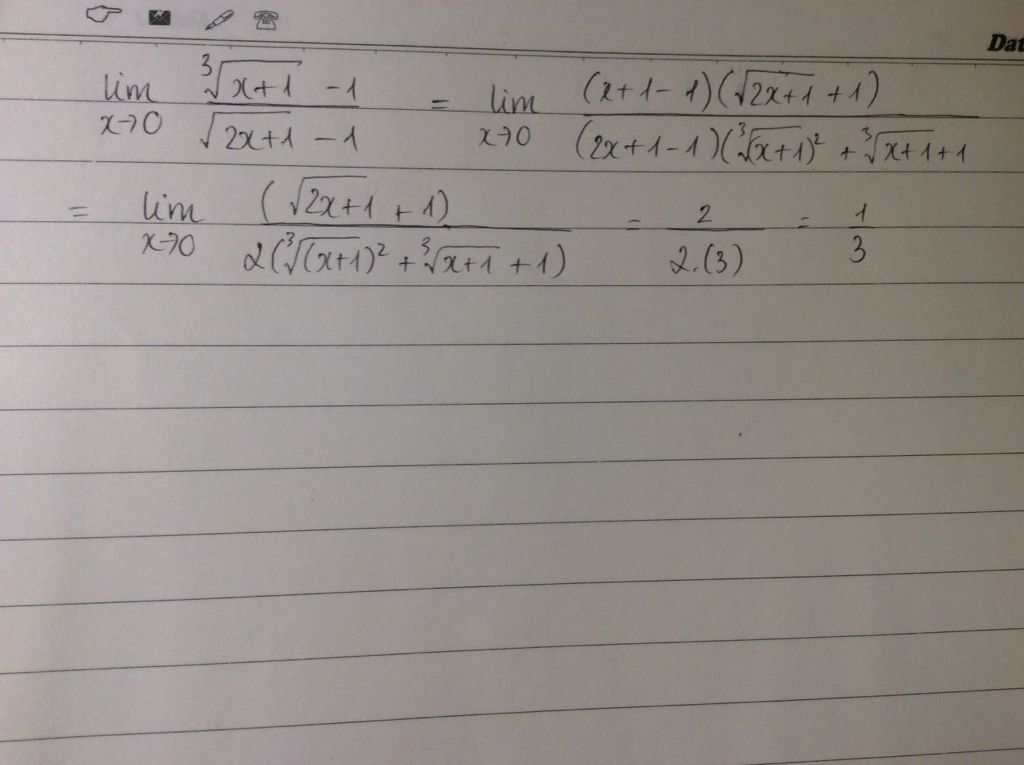 Dat
lim x→0 (∛(x+1) - 1)/(√(2x+1) - 1) = lim x→0 ((x+1-1)(√(2x+1) + 1))/((2x+1-1)(∛(x+1)² + ∛(x+1) + 1
= lim x→0 (√(2x+1) + 1)/(2(∛((x+1)² + ∛(x+1) + 1)) = 2/(2.(3)) = 1/3